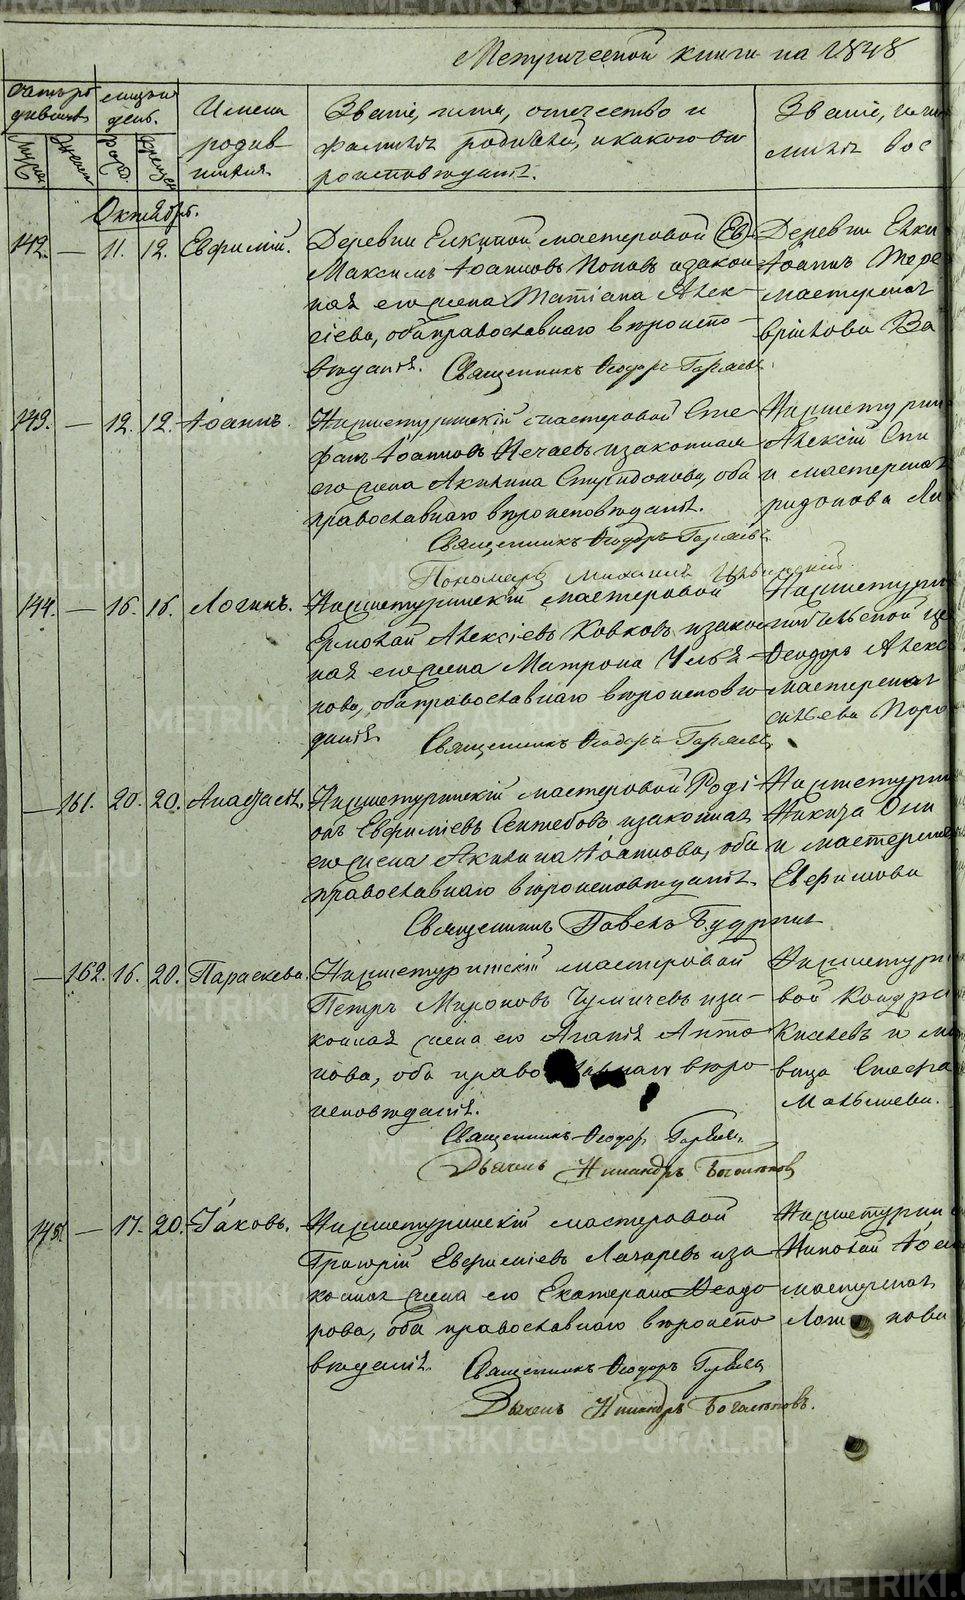 Метрической книги на 1848
Счетъ ро дившихся
Мѣсяцъ и день.
Имена родив шихся
Званіе, имя, отчество и
фамилія родителей, и какого вѣ
роисповѣданія.
Званіе, имя
милія вос
Октябрь.
142. — 11. 12. Евфимій. Деревни Елкиной мастеровой
Максимъ Іоанновъ Поповъ и закон
ная его жена Татіана Алек
сіева, оба православнаго вѣроиспо
вѣданія. Священникъ Ѳеодоръ Горяевъ
Деревни Елки
Іоаннъ
мастерскаг
143. — 12. 12. Іоаннъ. Нижнетуринскій мастеровой Сте
фанъ Іоанновъ Нечаевъ и законная
его жена Акилина Спиридонова, оба
православнаго вѣроисповѣданія.
Священникъ Ѳеодоръ Горяевъ
Пономарь Михаилъ
Нижнетурин
Алексій Спи
и мастерскаг
ридонова
144. — 16. 16. Логинъ. Нижнетуринскій мастеровой
Ермолай Алексіевъ Ковковъ и закон
ная его жена Матрона Улья
нова, оба православнаго вѣроисповѣ
данія. Священникъ Ѳеодоръ Горяевъ
Нижнетурин
Ѳеодоръ Алекс
мастерскаг
— 161. 20. 20. Анастасія. Нижнетуринскій мастеровой Роді
онъ Евфиміевъ и законная
его жена Акилина Іоаннова, оба
православнаго вѣроисповѣданія.
Священникъ Павелъ Будринъ
Нижнетурин
Никита Оси
и мастерска
Евфимова
— 162. 16. 20. Параскева. Нижнетуринскій мастеровой
Петръ Мироновъ Чумичевъ и за
конная жена его Агапія Анто
нова, оба православнаго вѣро
исповѣданія.
Священникъ Ѳеодоръ Горяевъ
Дьячекъ Никандръ Боголѣповъ
Нижнетур
вой Кондра
Киселевъ и ма
вица Стефа
Малышева.
145. — 17. 20. Іаковъ. Нижнетуринскій мастеровой
Григорій Евфиміевъ Лачаревъ и за
конная жена его Екатерина Ѳеодо
рова, оба православнаго вѣроиспо
вѣданія. Священникъ Ѳеодоръ Горяевъ
Дьячекъ Никандръ Боголѣповъ.
Нижнетурин
Николай Іоа
мастерская
METRIKI.GASO-URAL.RU